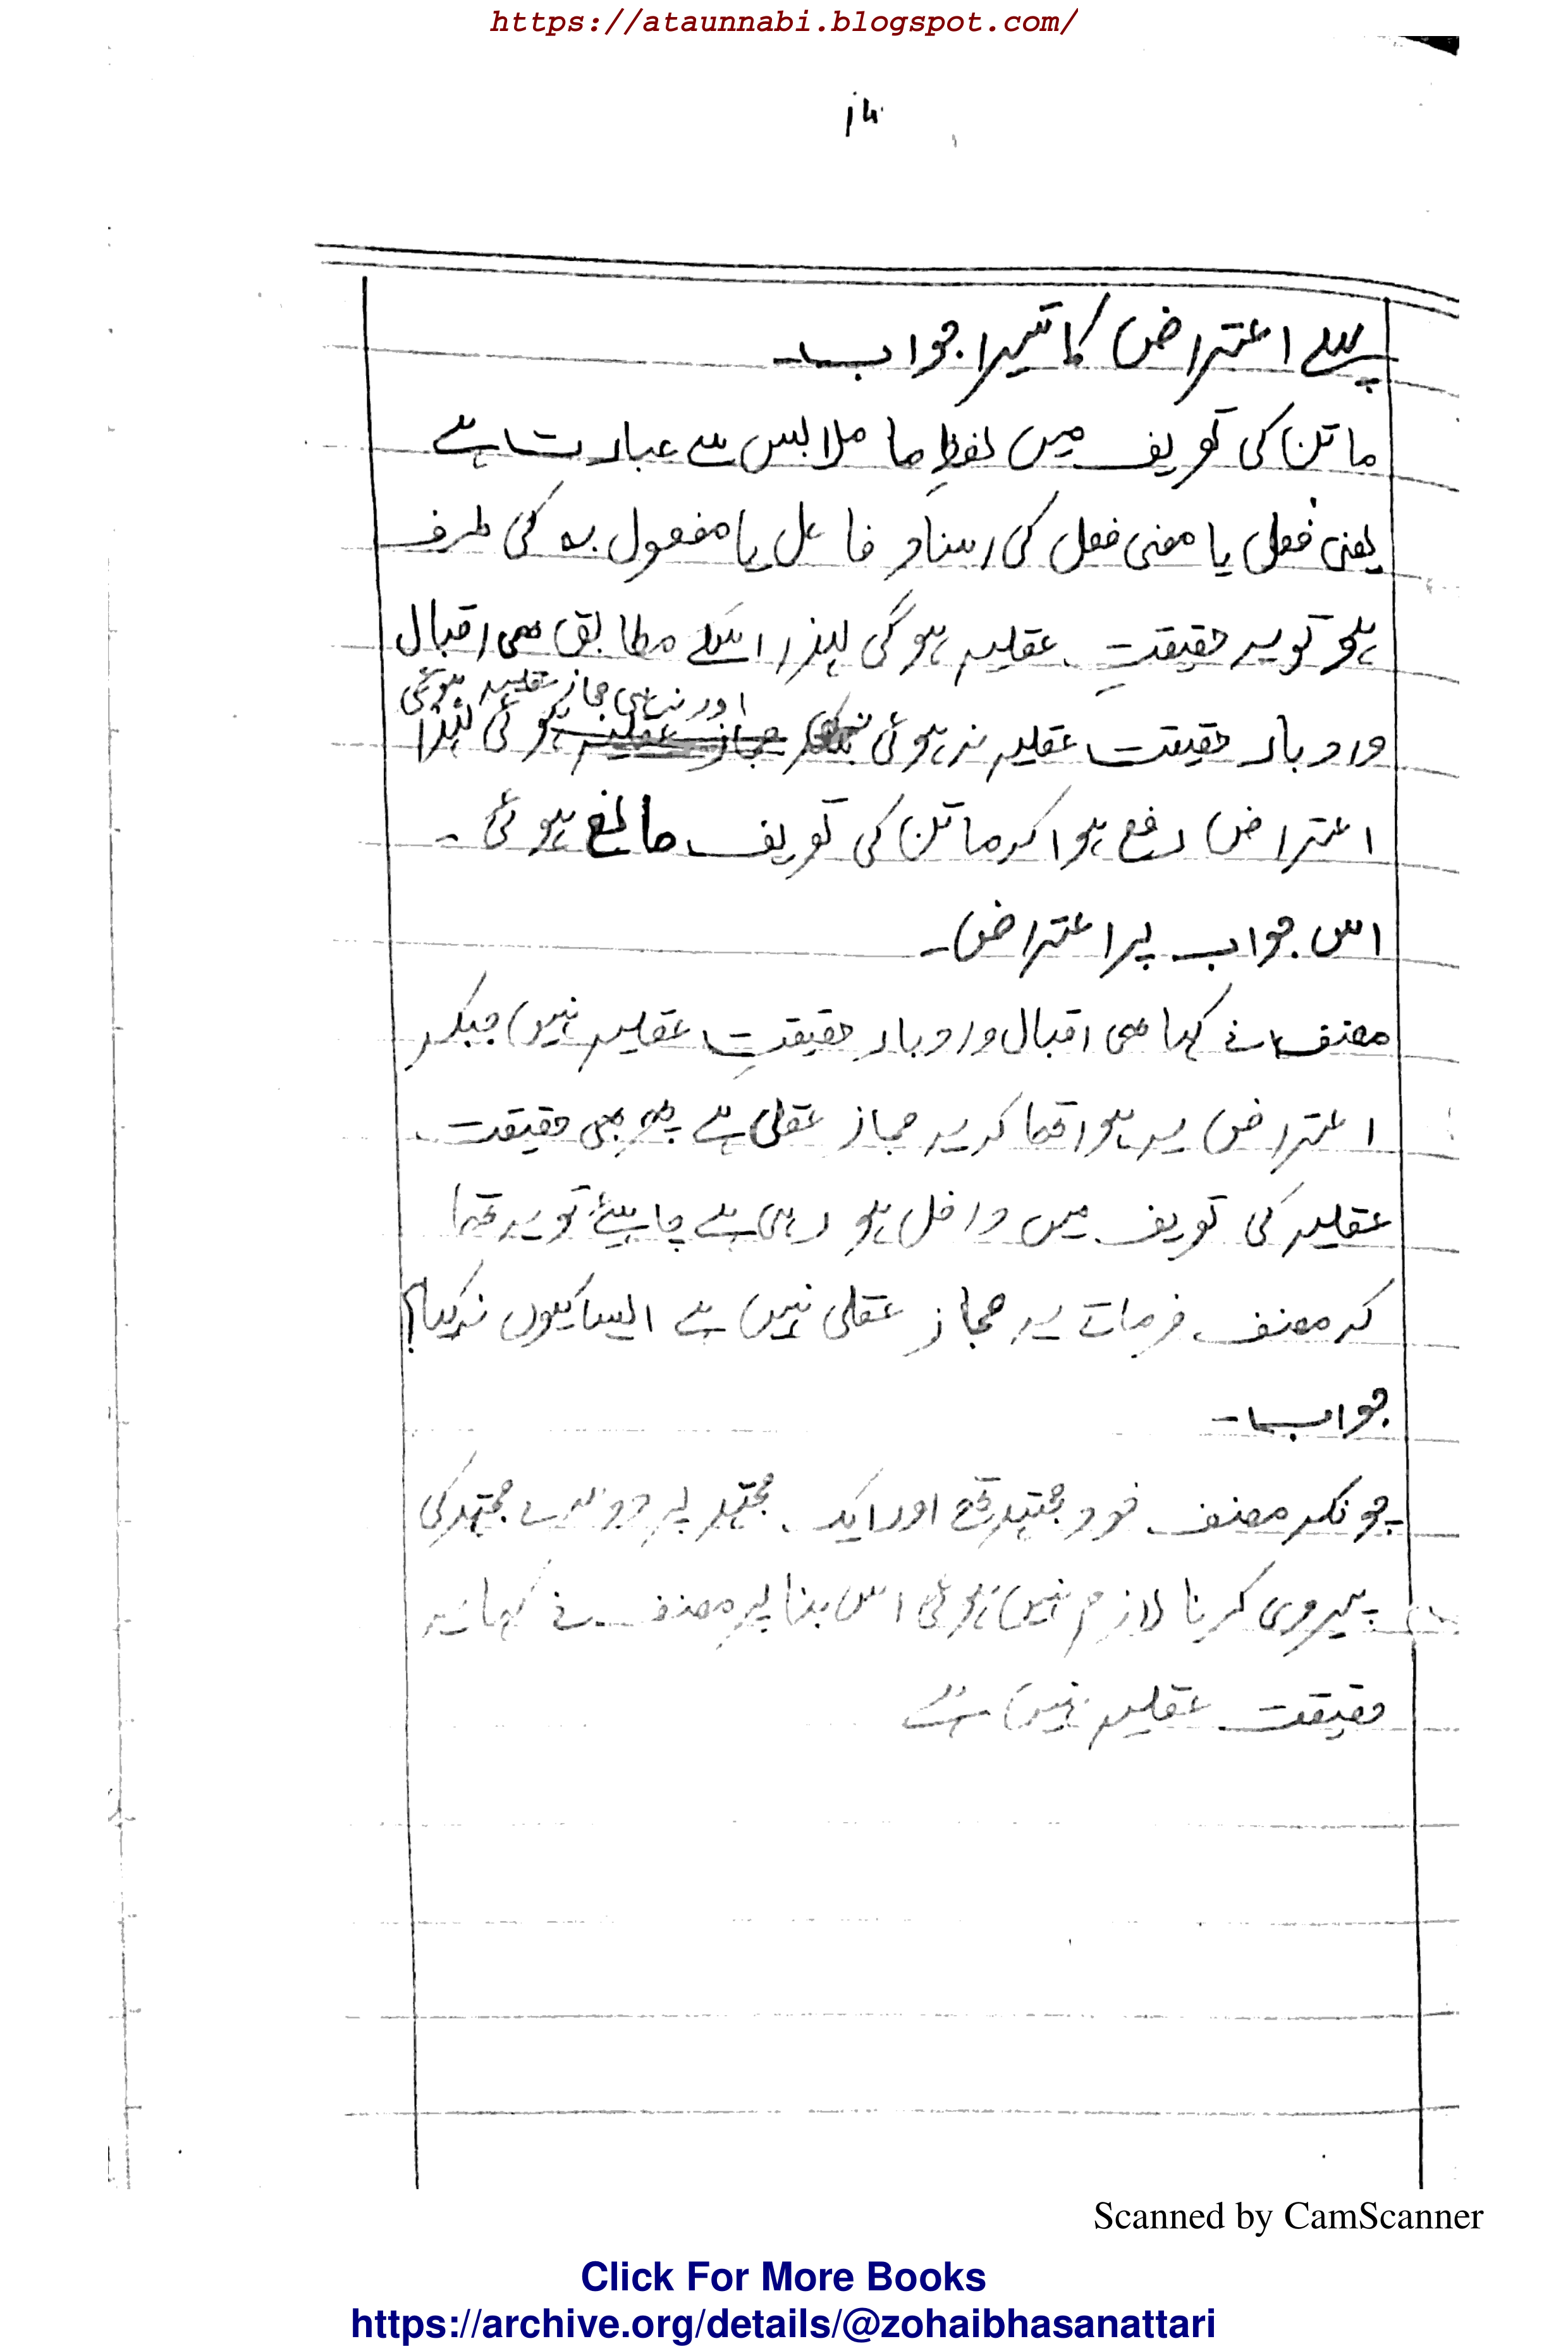 https://ataunnabi.blogspot.com/
پہلے اعتراض کا تیسرا جواب۔
ماتن کی تعریف میں لفظِ ما ملابس سے عبارت ہے
یعنی فعل یا معنی فعل کی اسناد فاعل یا مفعول بہ کی طرف
ہو تو یہ حقیقتِ عقلیہ ہوگی لہذا اسکے مطابق ھی اقبال
اور نہ ہی مجاز عقلیہ ہوئی
وادبار حقیقت عقلیہ نہ ہوئی مجاز عقلیہ ہوئی لہذا
اعتراض رفع ہوا کہ ماتن کی تعریف مانع ہوئی۔
اس جواب پر اعتراض۔
مصنف نے کہا ھی اقبال وادبار حقیقتِ عقلیہ نہیں جبکہ
اعتراض یہ ہوا تھا کہ یہ مجاز عقلی ہے پھر بھی حقیقت
عقلیہ کی تعریف میں داخل ہو رہی ہے چاہیئے تو یہ تھا
کہ مصنف فرماتے یہ مجاز عقلی نہیں ہے ایسا کیوں نہ کیا؟
جواب۔
چونکہ مصنف خود مجتہد تھے اور ایک مجتہد پر دوسرے مجتہد کی
پیروی کرنا لازم نہیں ہوتی اس بنا پر مصنف نے کہا یہ
حقیقت عقلیہ نہیں ہے
Scanned by CamScanner
Click For More Books
https://archive.org/details/@zohaibhasanattari